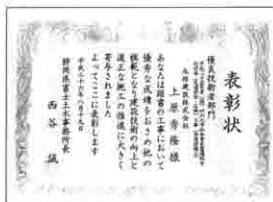 表彰状
優良技術者部門
上原秀隆様
あなたは頭書の工事において
優秀な成績をおさめ他の
模範となり建設技術の向上と
適正な施工の推進に大きく
寄与されました
よってここに表彰します
平成二十六年八月十九日
静岡県富士土木事務所長
西谷 誠